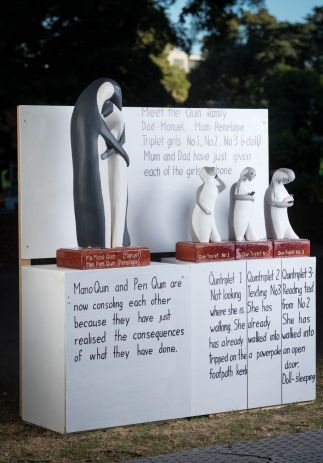 Meet the Quin Family
Dad-Manuel, Mum-Penelope
Triplet girls No1, No2, No3 (-doll)
Mum and Dad have just given
each of the girls phone
Ma Mano Quin (Manuel)
Men Pen Quin (Penelope)
Quin Triplet No1
Quin Triplet No2
Quin Triplet No3
ManoQuin and Pen Quin are
now consoling each other
because they have just
realised the consequences
of what they have done.
Quintriplet 1
Not looking
where she is
walking. She
has already
tripped on the
footpath kerb
Quintriplet 2
Texting No3
She has
already
walked into
a powerpole
Quintriplet 3
Reading text
from No2
She has
walked into
an open
door,
Doll-sleeping